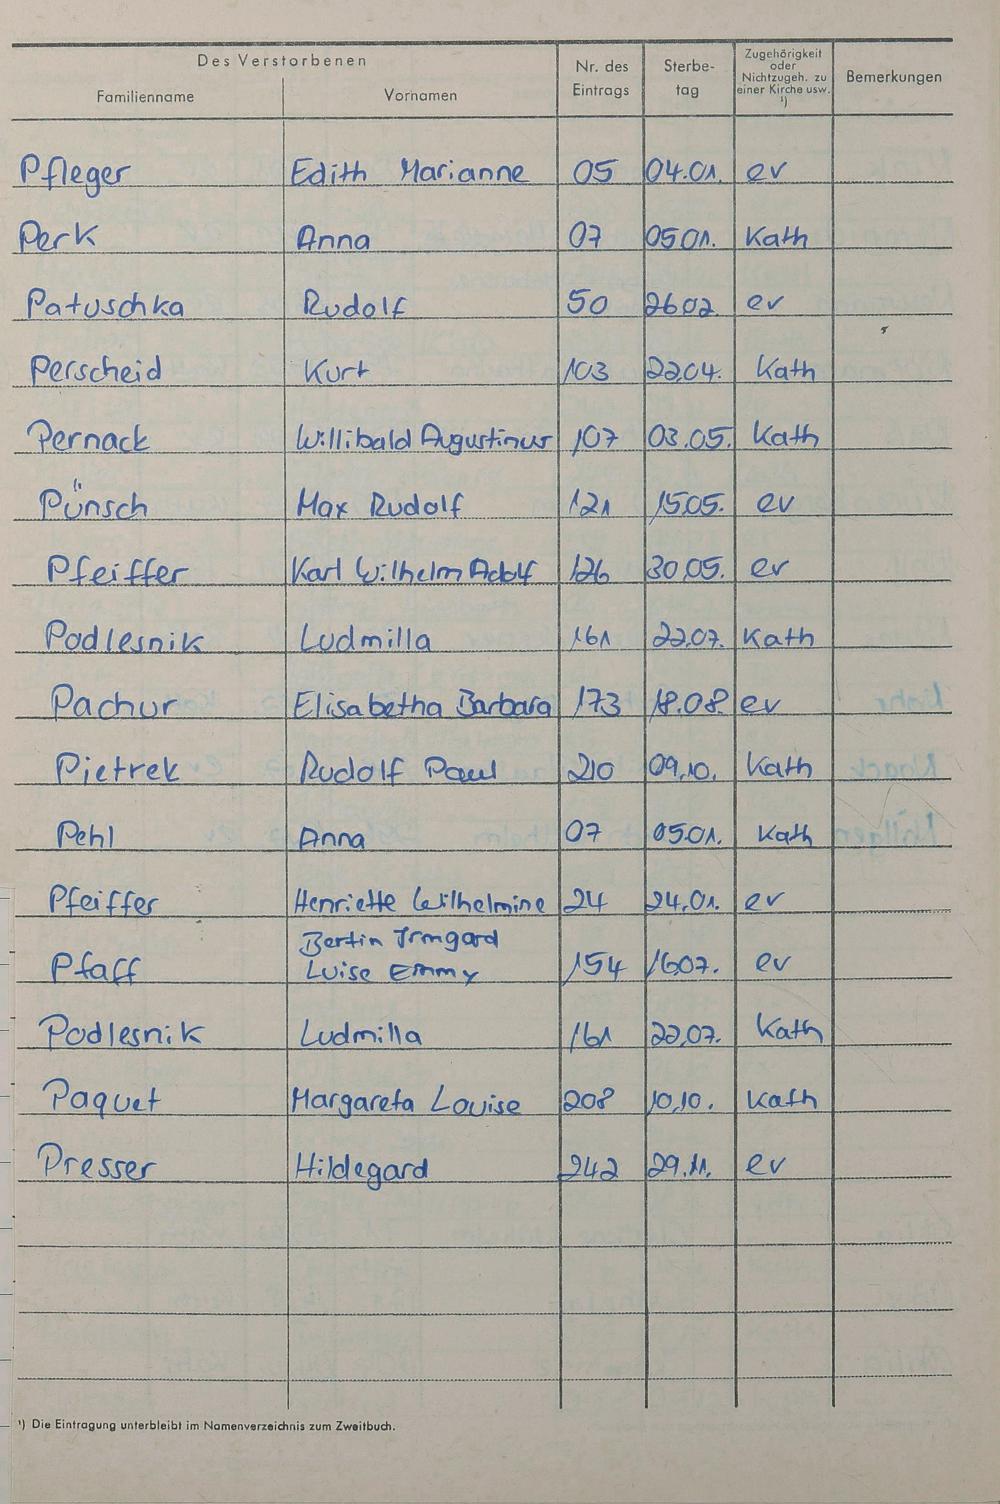 Des Verstorbenen
Familienname Vornamen Nr. des Eintrags Sterbe-tag Zugehörigkeit oder Nichtzugeh. zu einer Kirche usw. ¹) Bemerkungen
Pfleger Edith Marianne 05 04.01. ev
Perk Anna 07 05.01. Kath
Patuschka Rudolf 50 26.02. ev
Perscheid Kurt 103 22.04. Kath
Pernack Willibald Augustinus 107 03.05. Kath
Pünsch Max Rudolf 121 15.05. ev
Pfeiffer Karl Wilhelm Adolf 126 30.05. ev
Podlesnik Ludmilla 161 22.07. Kath
Pachur Elisabetha Barbara 173 18.08. ev
Pietrek Rudolf Paul 210 09.10. Kath
Pehl Anna 07 05.01. Kath
Pfeiffer Henriette Wilhelmine 24 24.01. ev
Bertin Irmgard
Pfaff Luise Emmy 154 16.07. ev
Podlesnik Ludmilla 161 22.07. Kath
Paquet Margareta Louise 208 10.10. Kath
Presser Hildegard 242 29.11. ev
¹) Die Eintragung unterbleibt im Namenverzeichnis zum Zweitbuch.